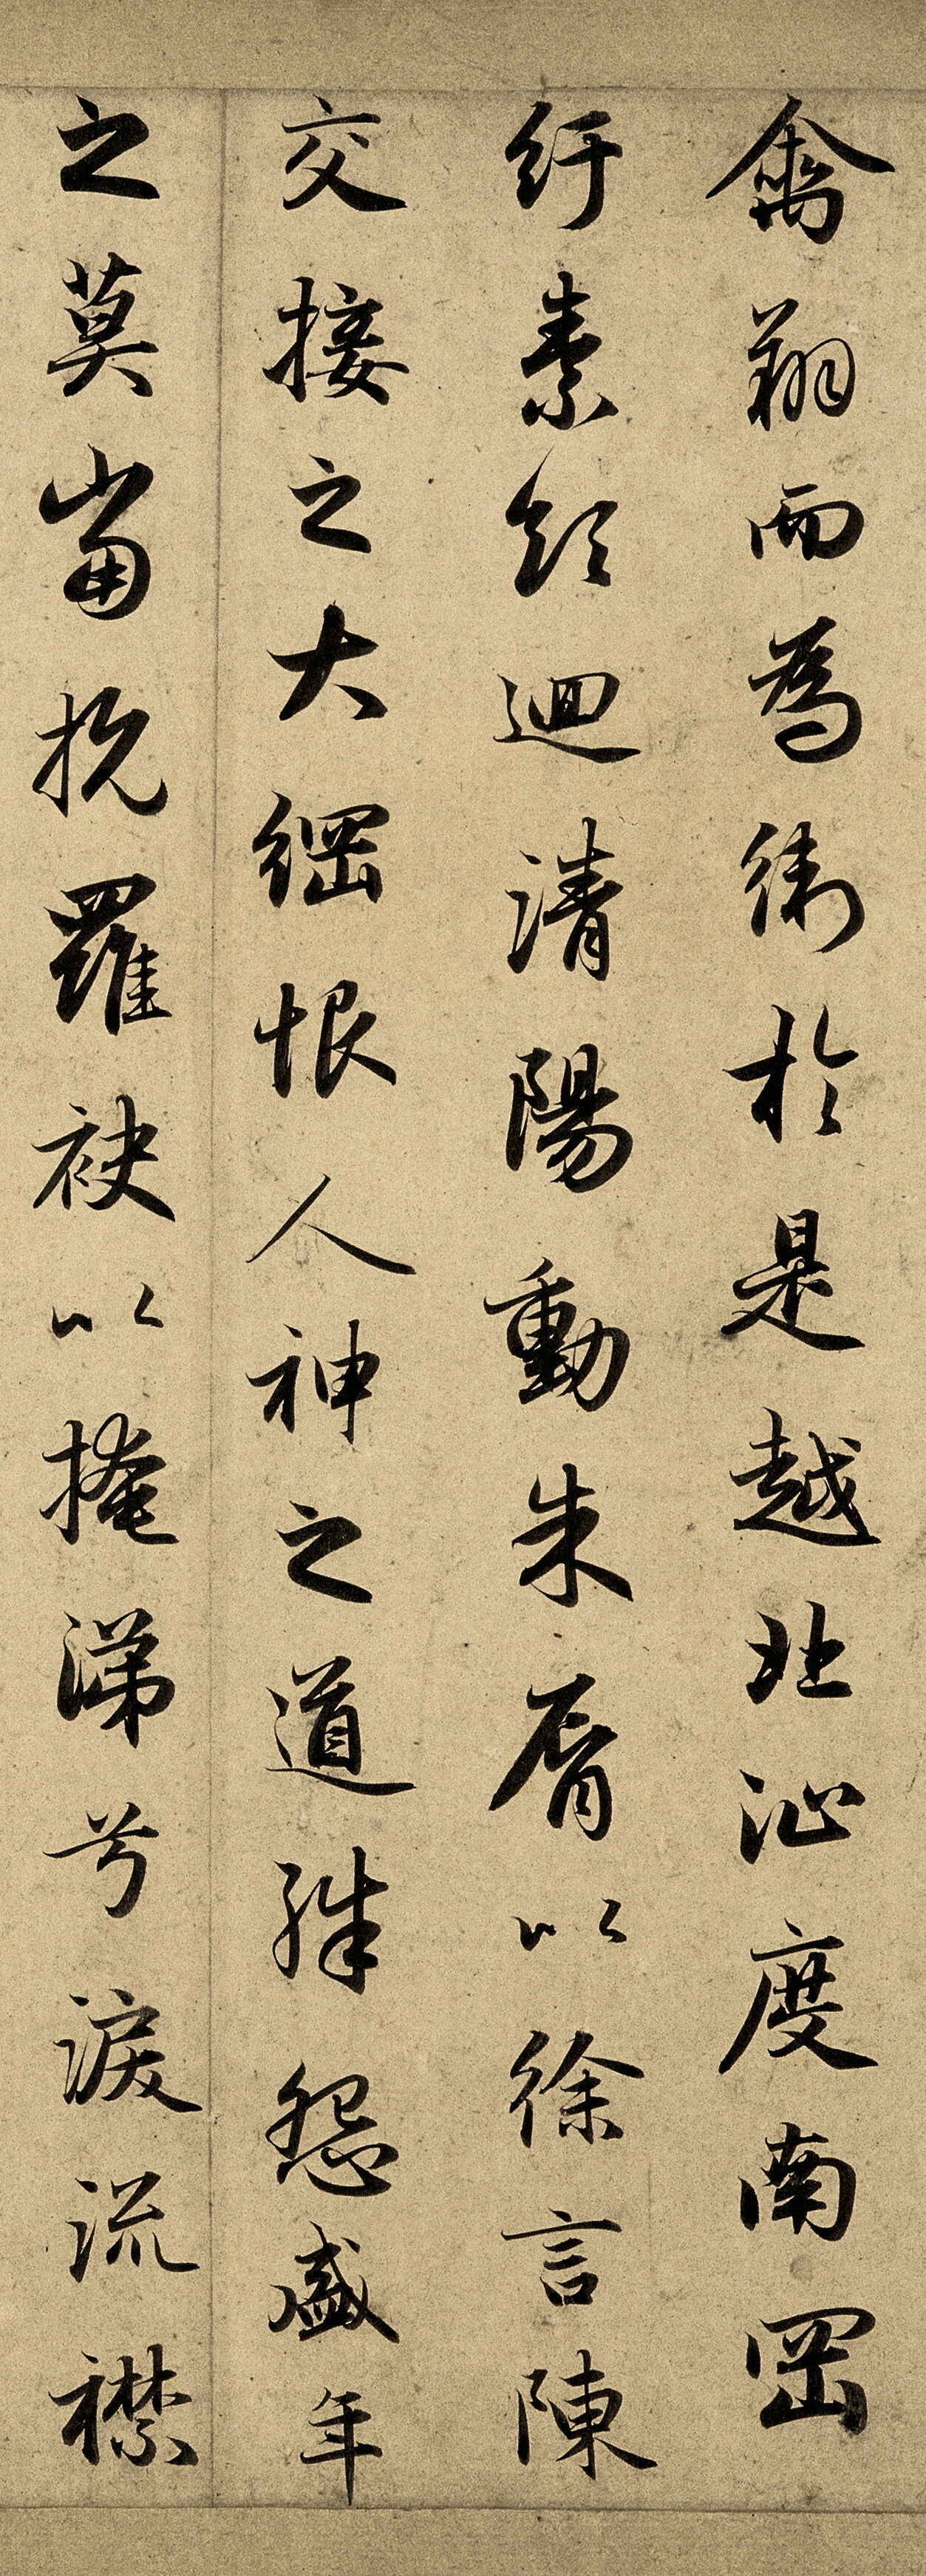 禽翔而為衛於是越北沚度南岡
紆素領迴清陽動朱脣以徐言陳
交接之大綱恨人神之道殊怨盛年
之莫當抗羅袂以掩涕兮淚流襟